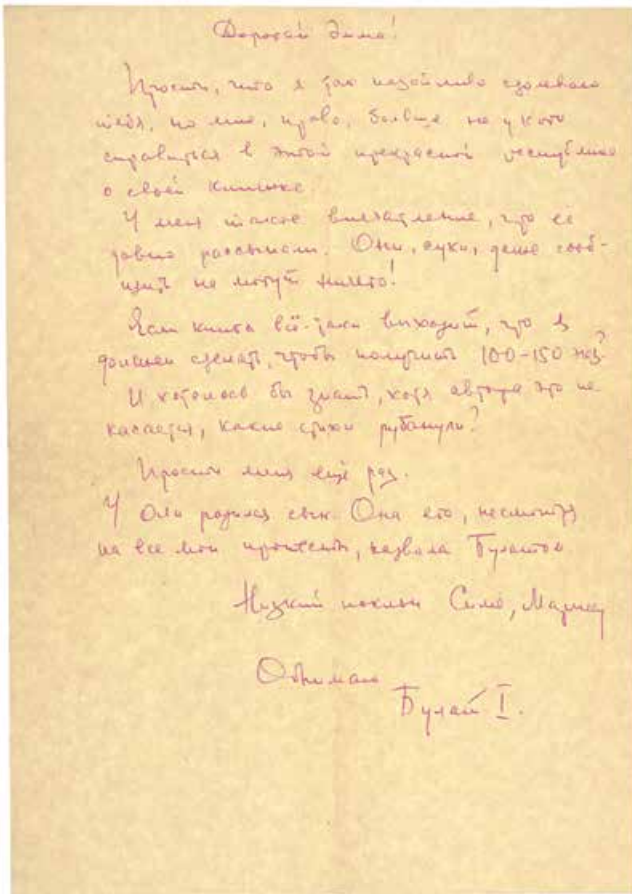 Дорогой Дима!
Прости, что я так назойливо одолеваю
тебя, но мне, право, больше не у кого
справиться в этой прекрасной республике
о своей книжке.
У меня такое впечатление, что её
давно рассыпали. Они, суки, даже сооб-
щить не могут ничего!
Если книга всё-таки выходит, что я
должен сделать, чтобы получить 100-150 экз?
И хотелось бы знать, хотя автора это не
касается, какие стихи рубанули?
Прости меня ещё раз.
У Оли родился сын. Она его, несмотря
на все мои протесты, назвала Булатом
Низкий поклон Симе,
Обнимаю
Булат I.